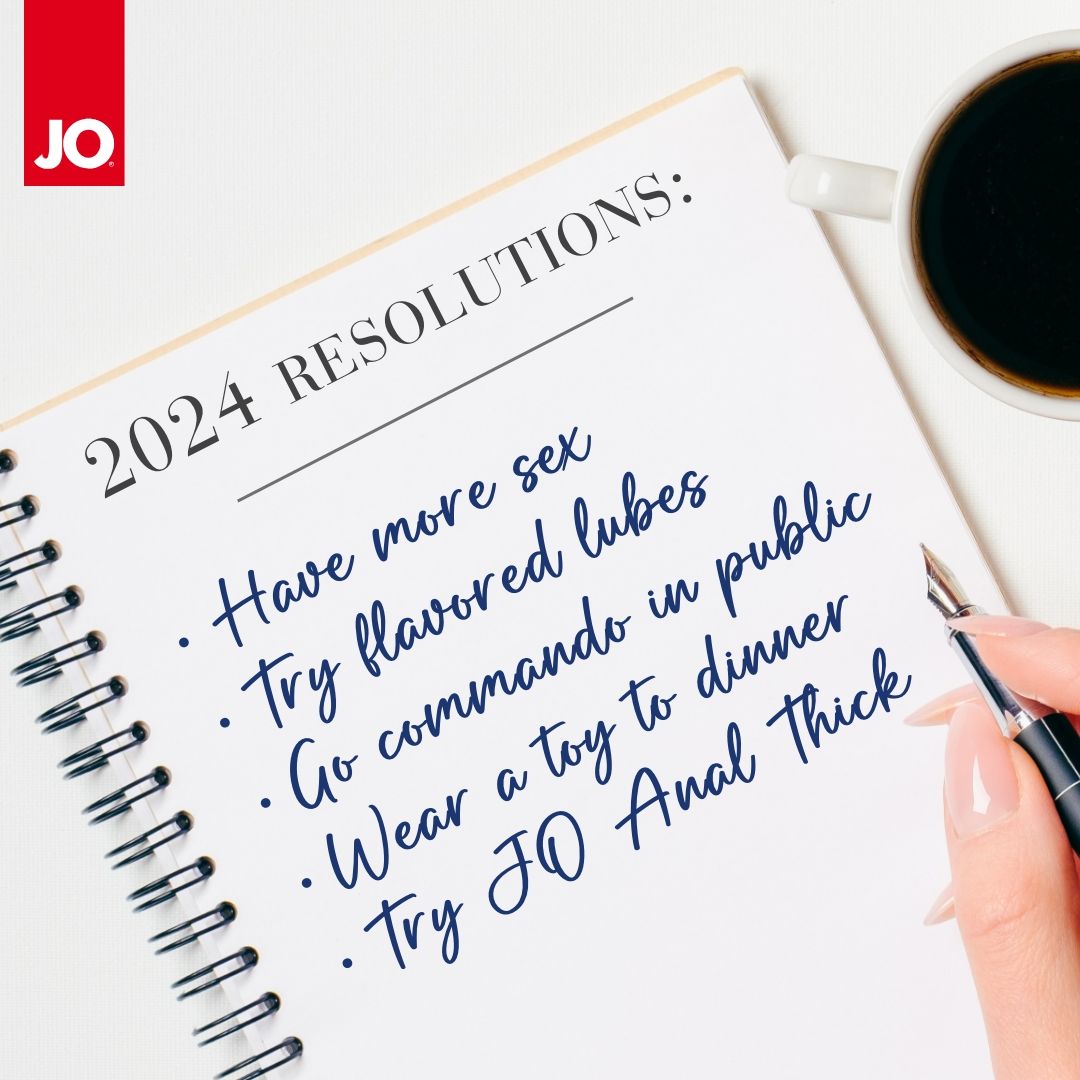 JO
2024 RESOLUTIONS:
• Have more sex
• Try flavored lubes
• Go commando in public
• Wear a toy to dinner
• Try JO Anal Thick